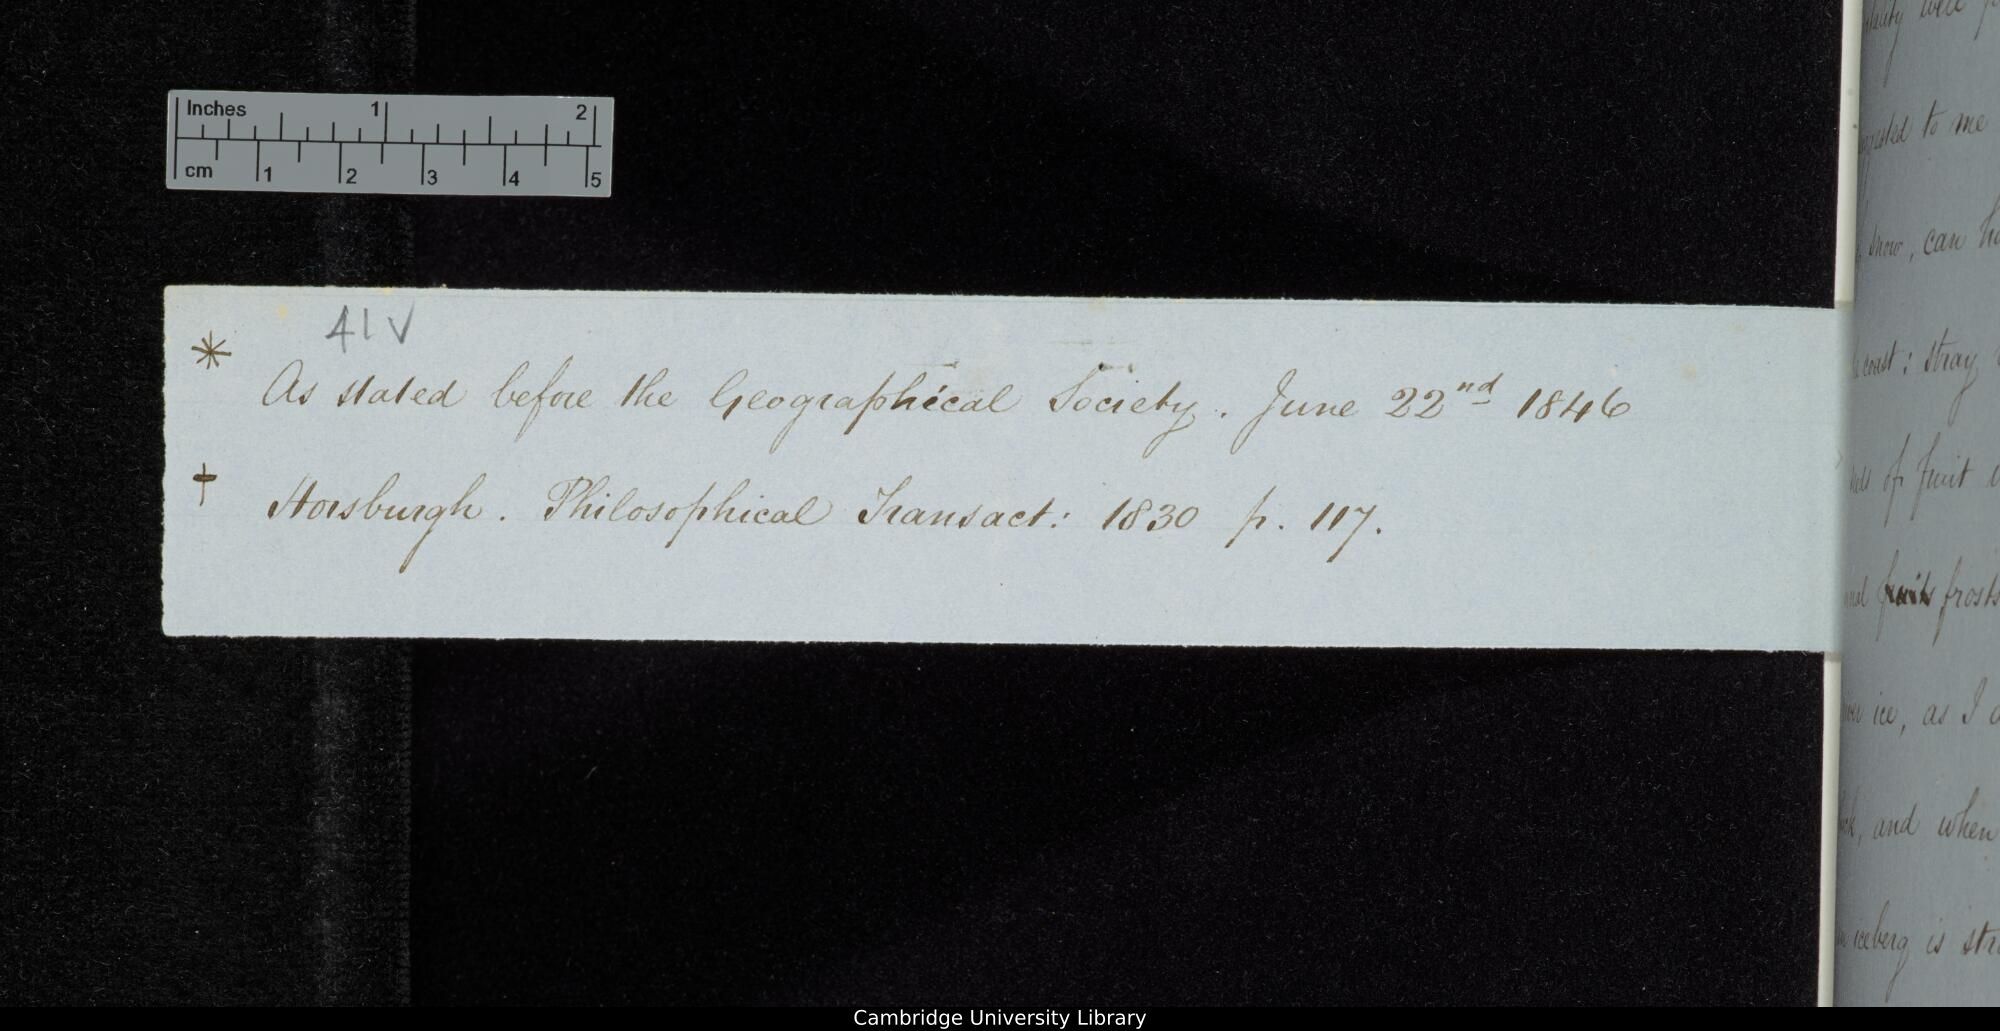 Inches 1 2
cm 1 2 3 4 5
41v
* As stated before the Geographical Society. June 22nd 1846
† Horsburgh. Philosophical Transact: 1830 p. 117.
were
to me
snow, can
coast: stray
of fruit
frosts
ice, as I
and when
iceberg is
Cambridge University Library